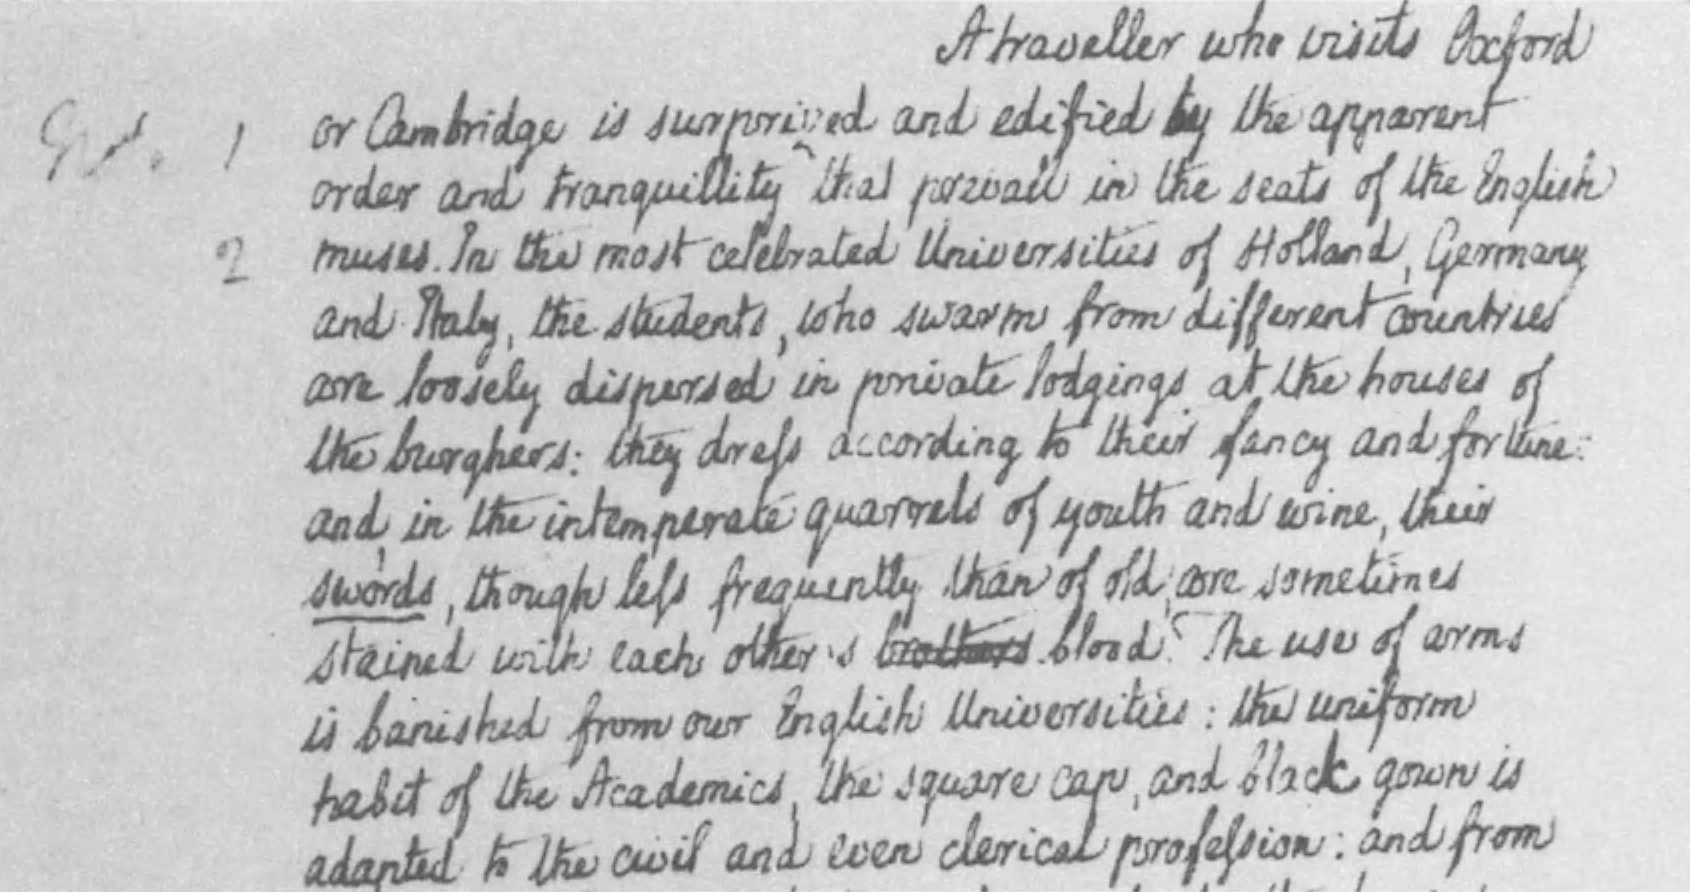 A traveller who visits Oxford
1 or Cambridge is surprized and edified by the apparent
order and tranquillity that prevail in the seats of the English
2 muses. In the most celebrated Universities of Holland, Germany
and Italy, the students, who swarm from different countries
are loosely dispersed in private lodgings at the houses of
the burghers: they dreſs according to their fancy and fortune:
and, in the intemperate quarrels of youth and wine, their
swords, though leſs frequently than of old, are sometimes
stained with each other's brothers blood. The use of arms
is banished from our English Universities: the uniform
habit of the Academics, the square cap, and black gown is
adapted to the civil and even clerical profeſsion: and from